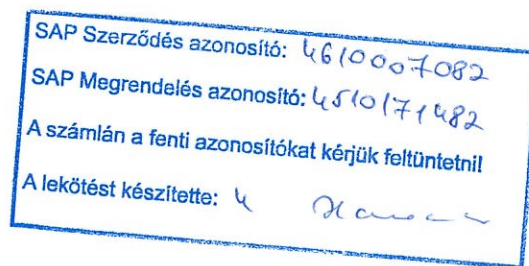 SAP Szerződés azonosító: 4610007082
SAP Megrendelés azonosító: 4510171482
A számlán a fenti azonosítókat kérjük feltüntetni!
A lekötést készítette: